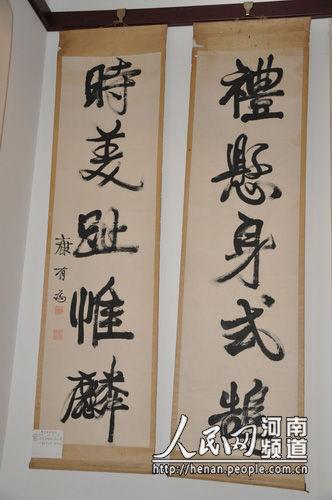 禮懸身式鵠
時美趾惟麟
康有為
人民网 河南频道
http://henan.people.com.cn